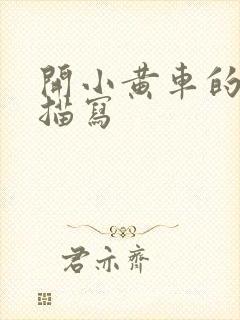 開小黄車的
描寫
君亦齊